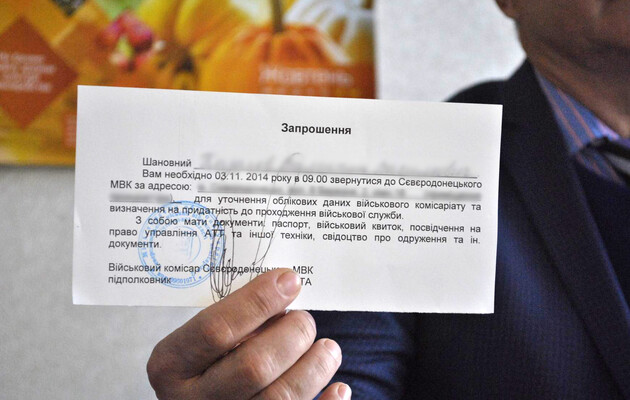 ЖОВТЕНЬ
Запрошення
Шановний
Вам необхідно 03.11. 2014 року в 09.00 звернутися до Сєвєродонецького
МВК за адресою:
для уточнення облікових даних військового комісаріату та
визначення на придатність до проходження військової служби.
З собою мати документи: паспорт, військовий квиток, посвідчення на
право управління АТТ та іншої техніки, свідоцтво про одруження та ін.
документи.
Військовий комісар Сєвєродонецького МВК
підполковник ТА